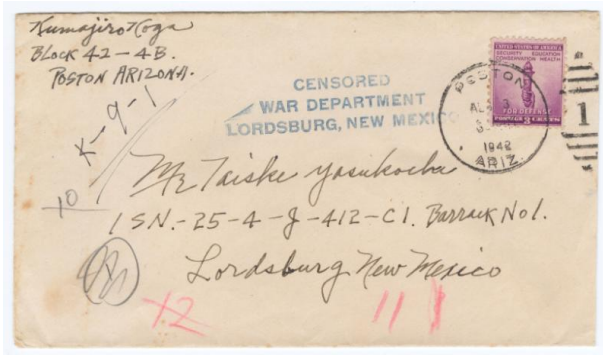 Kumajiro Koga
BLOCK 42-4B.
POSTON ARIZONA.
CENSORED
WAR DEPARTMENT
LORDSBURG, NEW MEXICO
UNITED STATES OF AMERICA
SECURITY EDUCATION
CONSERVATION HEALTH
FOR DEFENSE
POSTAGE 3 CENTS
POSTON
1942
ARIZ.
1
K-9-1
10
Mr Taiske Yasukochi
ISN.-25-4-J-412-C1. Barrack No1.
Lordsburg New Mexico
12
11